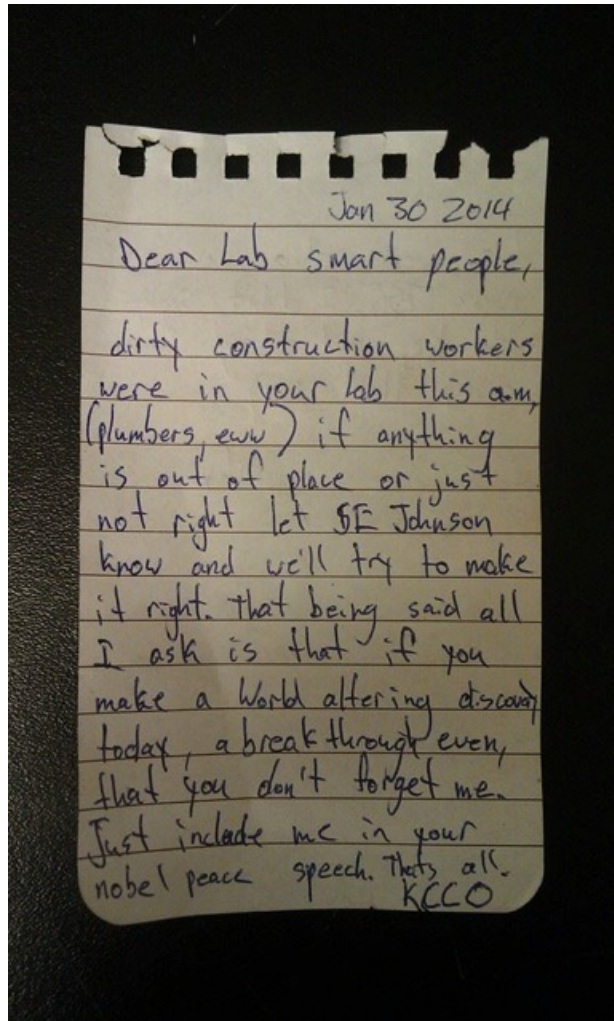 Jan 30 2014
Dear Lab smart people,
dirty construction workers
were in your lab this a.m,
(plumbers, eww) if anything
is out of place or just
not right let SE Johnson
know and we'll try to make
it right. That being said all
I ask is that if you
make a World altering discovery
today, a break through even,
that you don't forget me.
Just include me in your
nobel peace speech. Thats all.
KCCO